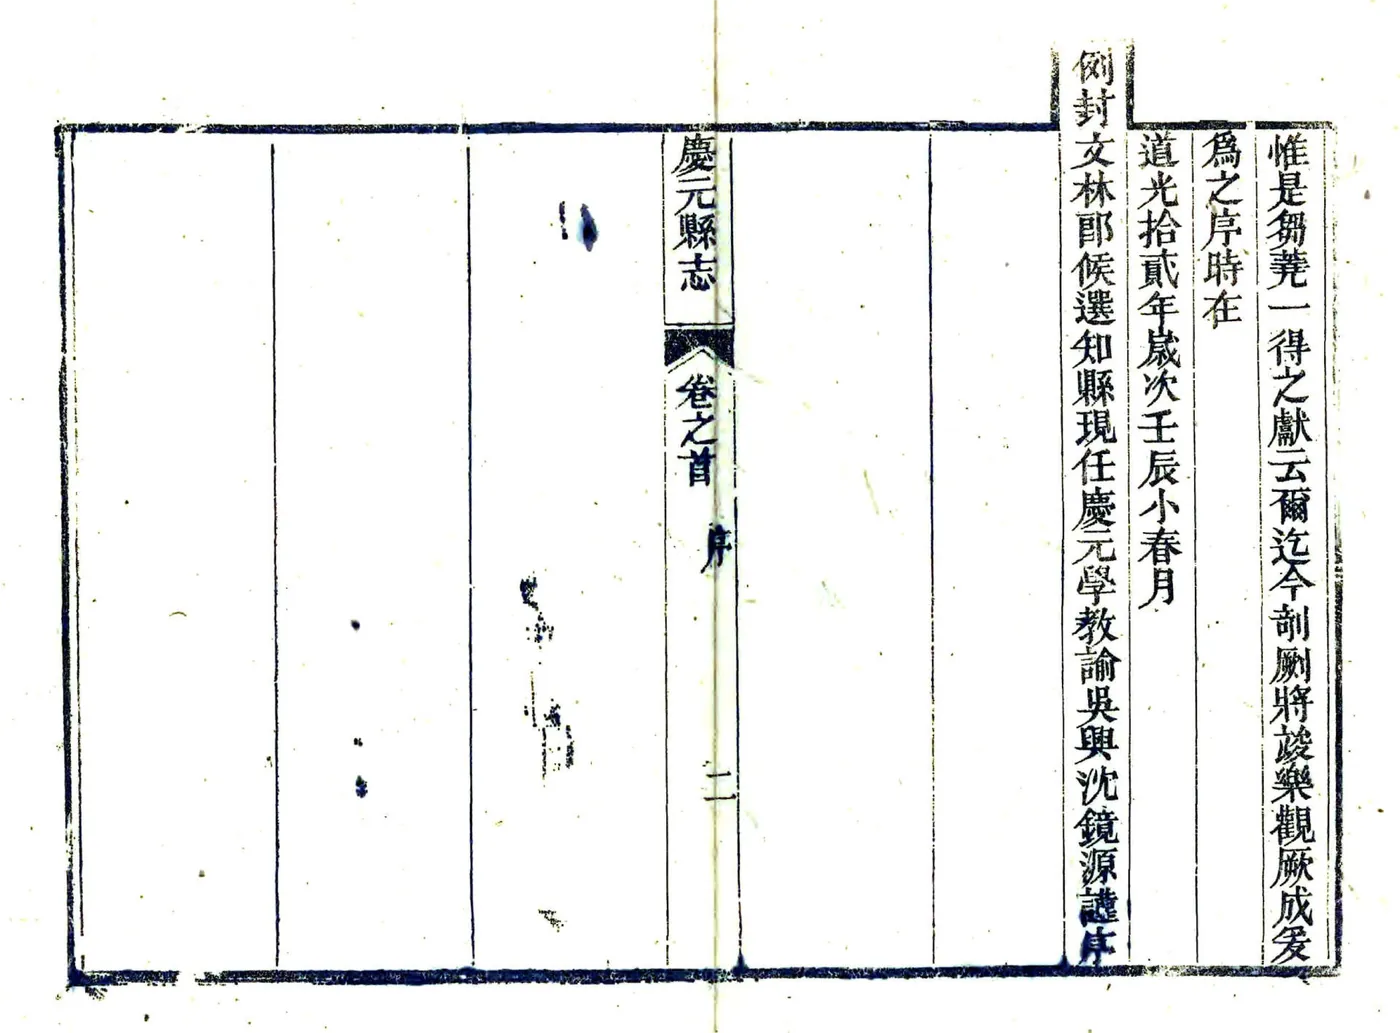 惟是芻蕘一得之獻云爾迄今剞劂將竣樂觀厥成爰
爲之序時在
道光拾貳年歲次壬辰小春月
例封文林郎候選知縣現任慶元學教諭吳興沈鏡源謹序
慶元縣志
卷之首
序
二